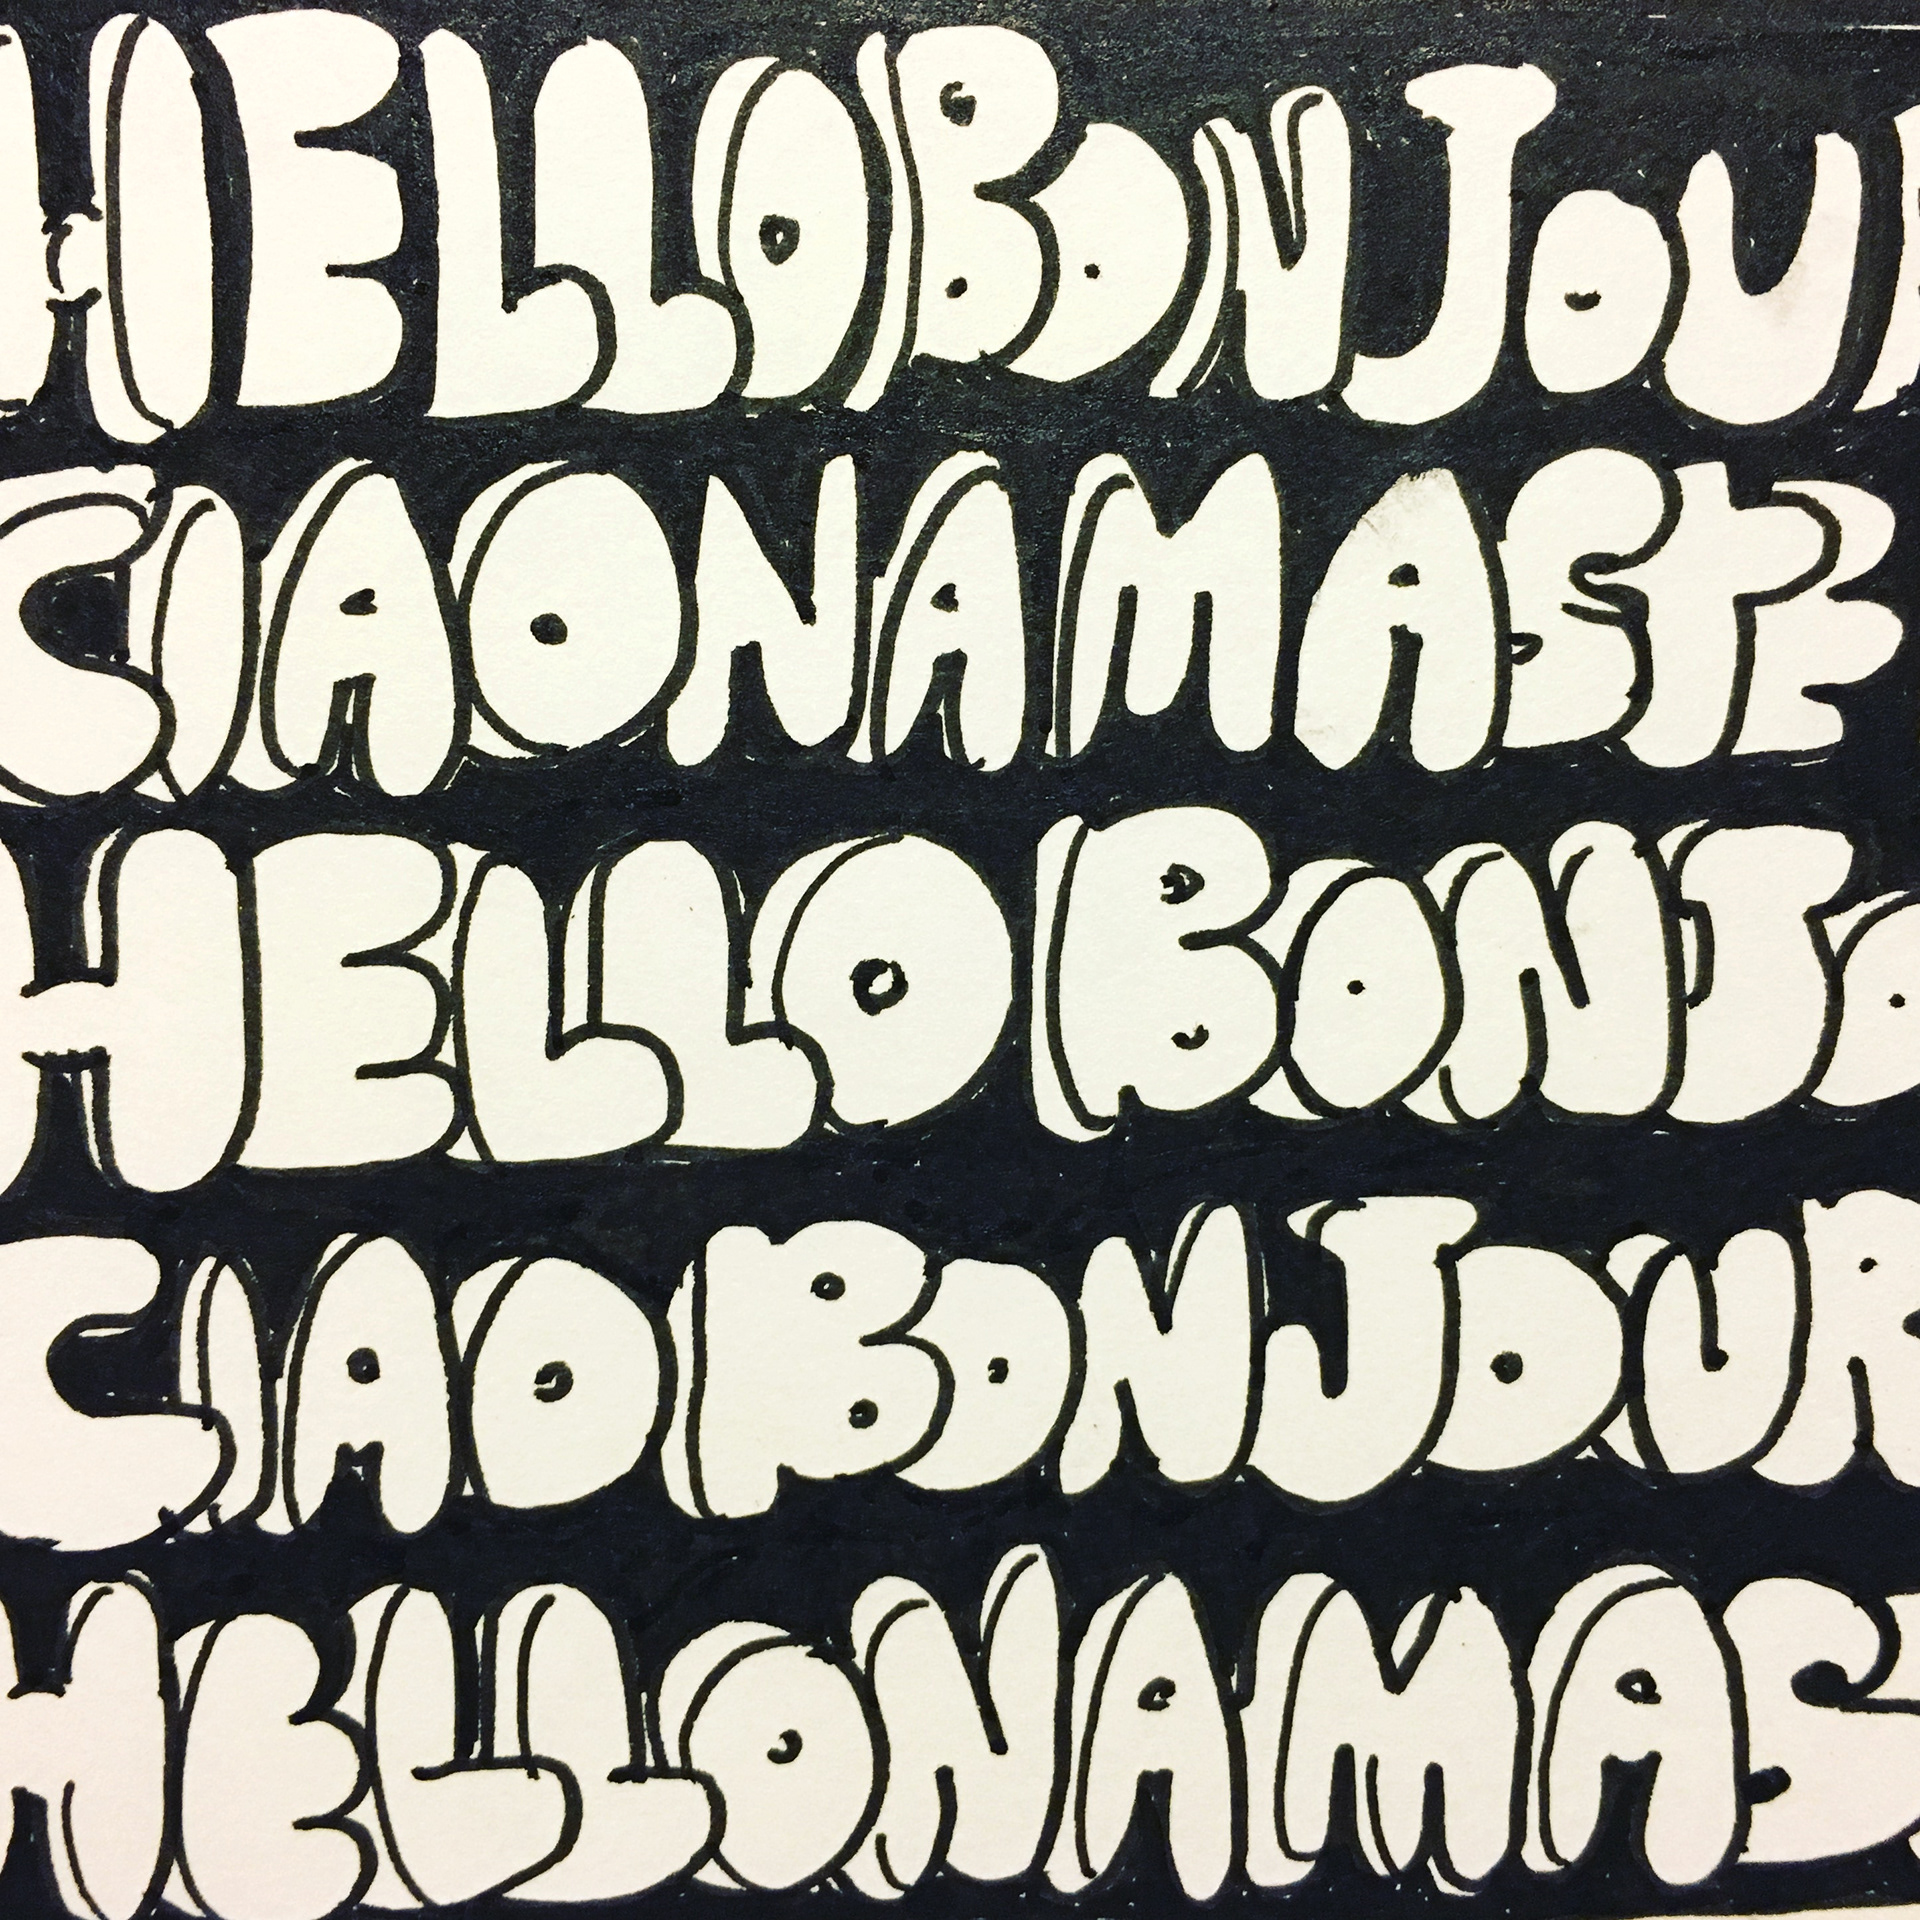 HELLO BONJOUR
CIAO NAMASTE
HELLO BONJO
CIAO BONJOUR
HELLO NAMAST